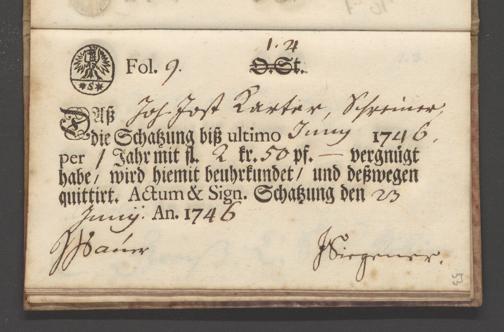 1. 4
*S*
Fol. 9. O. St.
Daß Joh. Jost Karter, Schreiner,
die Schatzung biß ultimo Junny 1746.
per 1 Jahr mit fl. 2 kr. 50 pf. — vergnügt
habe/ wird hiemit beuhrkundet/ und deßwegen
quittirt. Actum & Sign. Schatzung den 23
Junij. An. 1746
Bauer JSiegener.
53